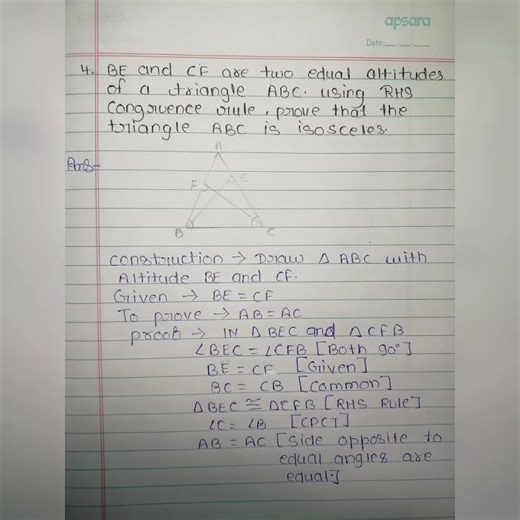 apsara
Date:
4. BE and CF are two equal altitudes
of a triangle ABC. using RHS
Congruence rule, prove that the
triangle ABC is isosceles.
Ans-
A
F E
B C
construction → Draw △ ABC with
Altitude BE and CF.
Given → BE = CF
To prove → AB = AC
proof → IN △ BEC and △ CFB
∠BEC = ∠CFB [Both 90°]
BE = CF [Given]
BC = CB [Common]
△BEC ≅ △CFB [RHS Rule]
∠C = ∠B [CPCT]
AB = AC [Side opposite to
equal angles are
equal.]